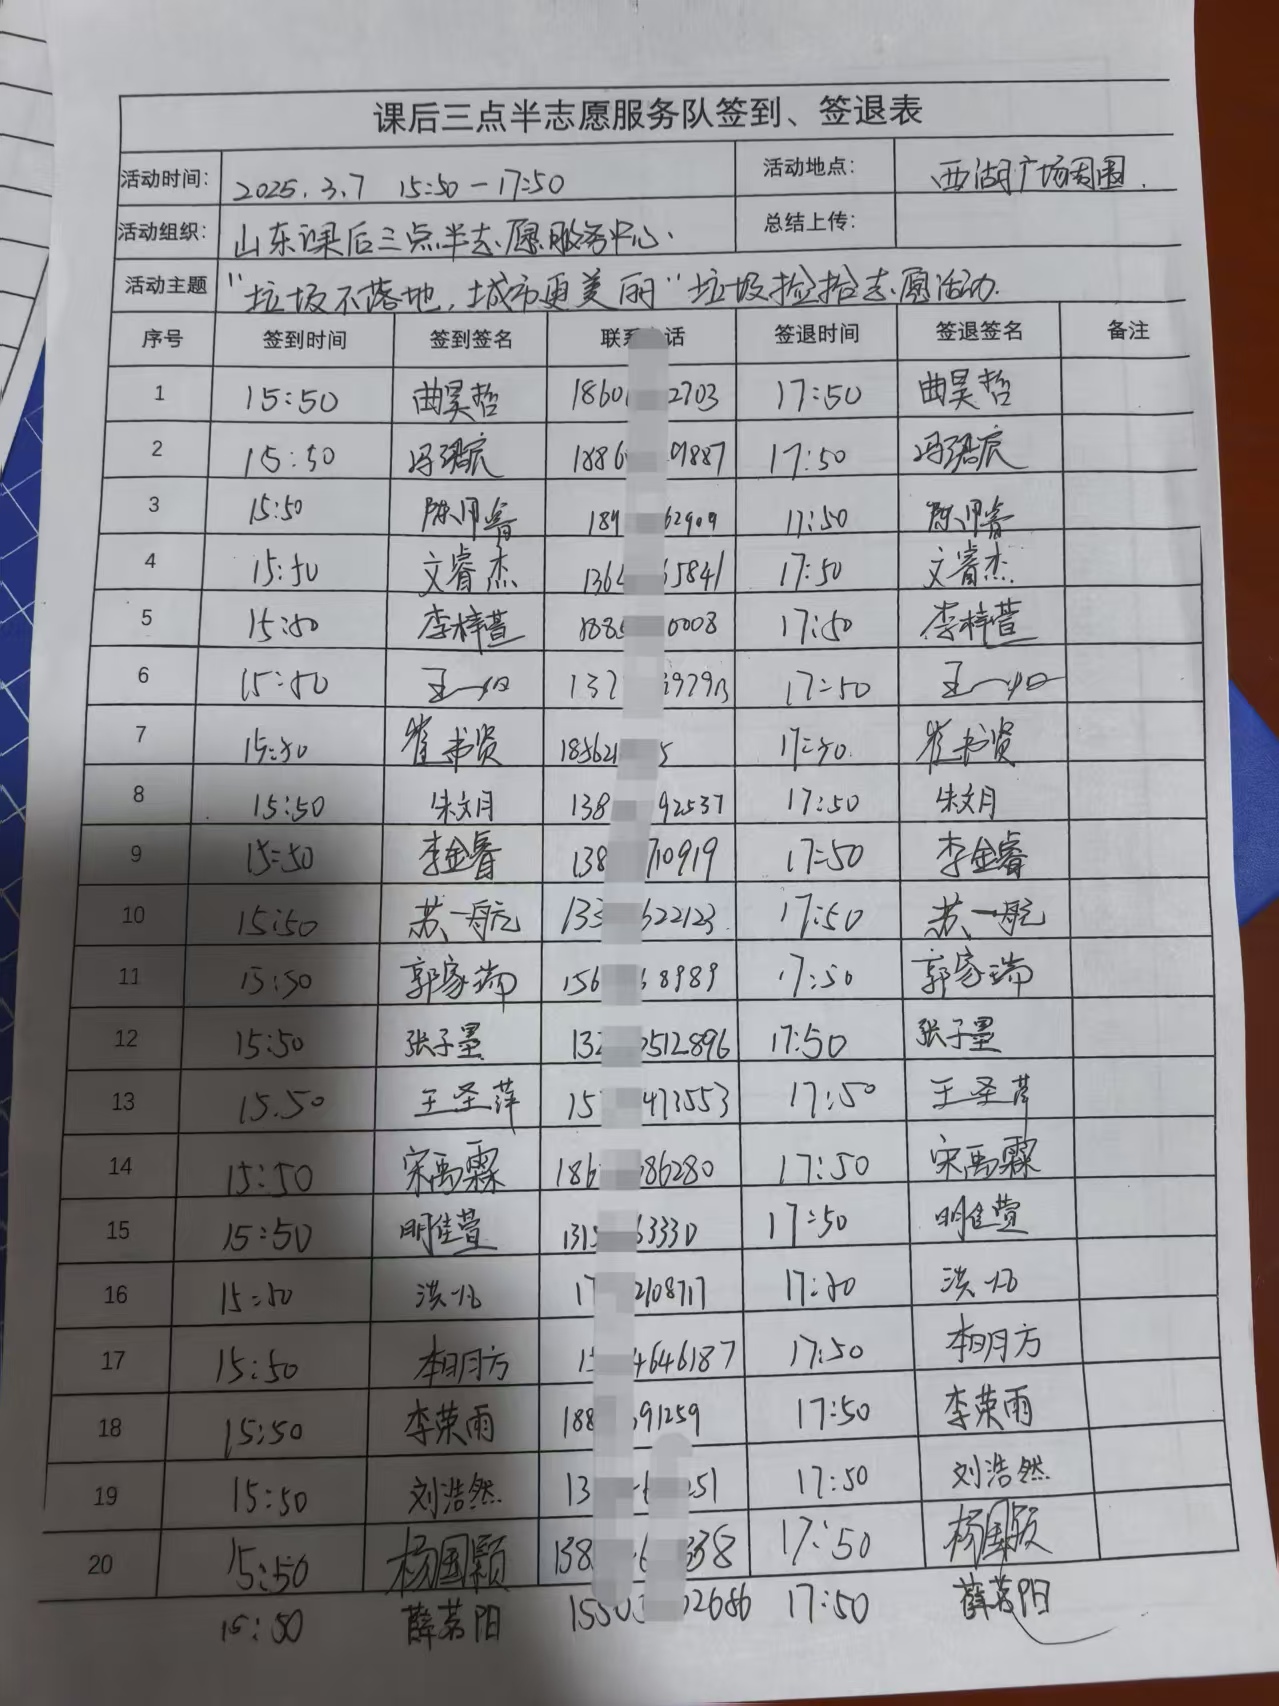 课后三点半志愿服务队签到、签退表
活动时间： 2025.3.7 15:50-17:50 活动地点： 西湖广场周围.
活动组织： 山东课后三点半志愿服务中心. 总结上传：
活动主题 "垃圾不落地,城市更美丽"垃圾捡拾志愿活动.
序号 签到时间 签到签名 联系 话 签退时间 签退签名 备注
1 15:50 曲昊哲 1860 2703 17:50 曲昊哲
2 15:50 冯 辰 1886 9887 17:50 冯 辰
3 15:50 陈 睿 189 62909 17:50 陈 睿
4 15:50 文睿杰 136 5841 17:50 文睿杰
5 15:50 李梓萱 188 0008 17:50 李梓萱
6 15:50 王一 137 17:50 王一
7 15:50 崔书贤 18562 5 17:50 崔书贤
8 15:50 朱文月 138 92537 17:50 朱文月
9 15:50 李金睿 138 710919 17:50 李金睿
10 15:50 苏一航 133 622123 17:50 苏一航
11 15:50 郭家瑞 156 8989 17:50 郭家瑞
12 15:50 张子墨 132 512896 17:50 张子墨
13 15.50 王圣萍 15 473553 17:50 王圣萍
14 15:50 宋禹霖 186 86280 17:50 宋禹霖
15 15:50 明佳萱 1315 3330 17:50 明佳萱
16 15:50 洪 17 2108717 17:50 洪
17 15:50 明方 15 4646187 17:50 明方
18 15:50 李荣雨 188 91259 17:50 李荣雨
19 15:50 刘浩然 13 51 17:50 刘浩然
20 15:50 杨国颖 138 338 17:50 杨国颖
15:50 薛茗阳 02686 17:50 薛茗阳